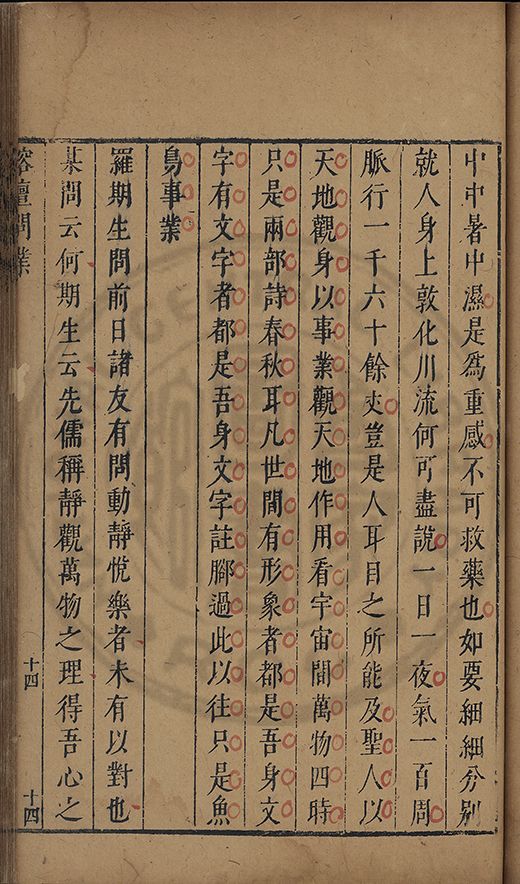 中中暑中濕是為重感不可救藥也如要細細分別
就人身上敦化川流何可盡說一日一夜氣一百周
脈行一千六十餘丈豈是人耳目之所能及聖人以
天地觀身以事業觀天地作用看宇宙間萬物四時
只是兩部詩春秋耳凡世間有形象者都是吾身文
字有文字者都是吾身文字註腳過此以往只是魚
鳥事業
羅期生問前日諸友有問動靜悅樂者未有以對也
某問云何期生云先儒稱靜觀萬物之理得吾心之
榕壇問業
十四
十四